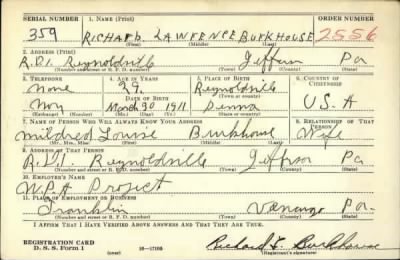 SERIAL NUMBER 1. NAME (Print) ORDER NUMBER
359 RICHARD LAWRENCE BURKHOUSE 2556
(First) (Middle) (Last)
2. ADDRESS (Print)
R.D.1. Reynoldsville Jefferson Pa
(Number and street or R. F. D. number) (Town) (County) (State)
3. TELEPHONE 4. AGE IN YEARS 5. PLACE OF BIRTH 6. COUNTRY OF CITIZENSHIP
None 29 Reynoldsville
DATE OF BIRTH (Town or county)
March 30 1911 Penna U.S.A
(Exchange) (Number) (Mo.) (Day) (Yr.) (State or country)
7. NAME OF PERSON WHO WILL ALWAYS KNOW YOUR ADDRESS 8. RELATIONSHIP OF THAT PERSON
Mildred Louise Burkhouse Wife
(Mr., Mrs., Miss) (First) (Middle) (Last)
9. ADDRESS OF THAT PERSON
R.D.1. Reynoldsville Jefferson Pa
(Number and street or R. F. D. number) (Town) (County) (State)
10. EMPLOYER'S NAME
W.P.A Project
11. PLACE OF EMPLOYMENT OR BUSINESS
Franklin Venango Pa.
(Number and street or R. F. D. number) (Town) (County) (State)
I AFFIRM THAT I HAVE VERIFIED ABOVE ANSWERS AND THAT THEY ARE TRUE.
REGISTRATION CARD
D. S. S. Form 1 (over) 16-17105 Richard L. Burkhouse
(Registrant's signature)